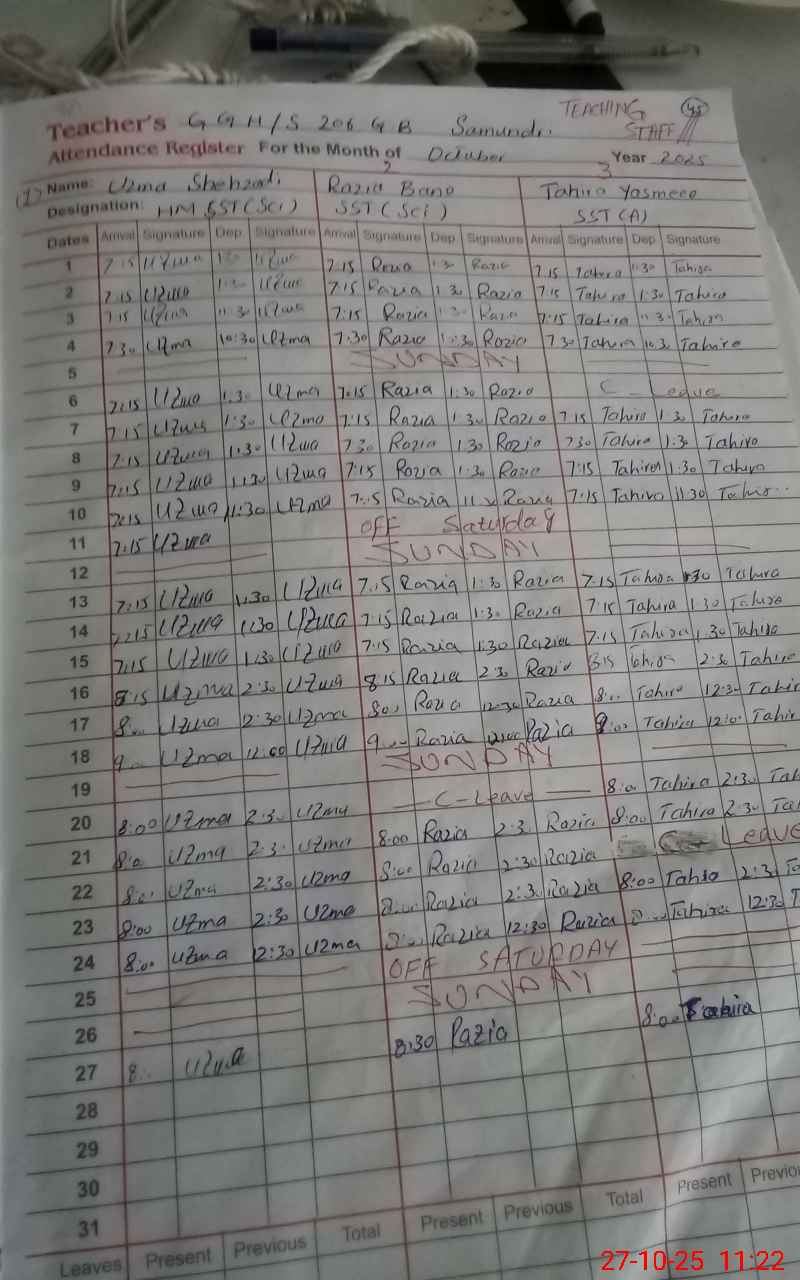 TEACHING
Teacher's GGH/S 206 GB Samundri. STAFF 45
Attendance Register For the Month of October Year 2025
(1) Name: Uzma Shehzadi 2 Razia Bano 3 Tahira Yasmeen
Designation: HM SST(Sci) SST(Sci) SST(A)
Dates Arrival Signature Dep Signature Arrival Signature Dep Signature Arrival Signature Dep Signature
1 7:15 Uzma Uzma 7:15 Razia 1:30 Razia 7:15 Tahira 1:30 Tahira
2 7:15 Uzma 1:30 Uzma 7:15 Razia 1:30 Razia 7:15 Tahira 1:30 Tahira
3 7:15 Uzma 11:30 Uzma 7:15 Razia Razia 7:15 Tahira 11:30 Tahira
4 7:30 Uzma 10:30 Uzma 7:30 Razia Razia 7:30 Tahira 10:30 Tahira
5 SUNDAY
6 7:15 Uzma 1:30 Uzma 7:15 Razia 1:30 Razia C-Leave
7 7:15 Uzma 1:30 Uzma 7:15 Razia 1:30 Razia 7:15 Tahira 1:30 Tahira
8 7:15 Uzma 1:30 Uzma 7:30 Razia 1:30 Razia 7:30 Tahira 1:30 Tahira
9 7:15 Uzma 1:30 Uzma 7:15 Razia 1:30 Razia 7:15 Tahira 1:30 Tahira
10 7:15 Uzma 11:30 Uzma 7:15 Razia Razia 7:15 Tahira 11:30 Tahira
11 7:15 Uzma OFF Saturday
12 SUNDAY
13 7:15 Uzma 1:30 Uzma 7:15 Razia 1:30 Razia 7:15 Tahira 1:30 Tahira
14 7:15 Uzma 1:30 Uzma 7:15 Razia 1:30 Razia 7:15 Tahira 1:30 Tahira
15 7:15 Uzma 1:30 Uzma 7:15 Razia 1:30 Razia 7:15 Tahira 1:30 Tahira
16 8:15 Uzma 2:30 Uzma 8:15 Razia 2:30 Razia 8:15 Tahira 2:30 Tahira
17 8:00 Uzma 12:30 Uzma 8:00 Razia 12:30 Razia 8:00 Tahira 12:30 Tahir
18 9:00 Uzma 12:00 Uzma 9:00 Razia 12:00 Razia 9:00 Tahira 12:00 Tahir
19 SUNDAY
20 8:00 Uzma 2:30 Uzma C-Leave 8:00 Tahira 2:30 Tah
21 8:00 Uzma 2:30 Uzma 8:00 Razia 2:30 Razia 8:00 Tahira 2:30 Ta
22 8:00 Uzma 2:30 Uzma 8:00 Razia 2:30 Razia Leave
23 8:00 Uzma 2:30 Uzma 8:00 Razia 2:30 Razia 8:00 Tahira 2:30 Ta
24 8:00 Uzma 12:30 Uzma 8:00 Razia 12:30 Razia 8:00 Tahira 12:30 T
25 OFF SATURDAY
26 SUNDAY
27 8:00 Uzma 8:30 Razia 8:00 Tahira
28
29
30
31
Leaves Present Previous Total Present Previous Total Present Previou
27-10-25 11:22